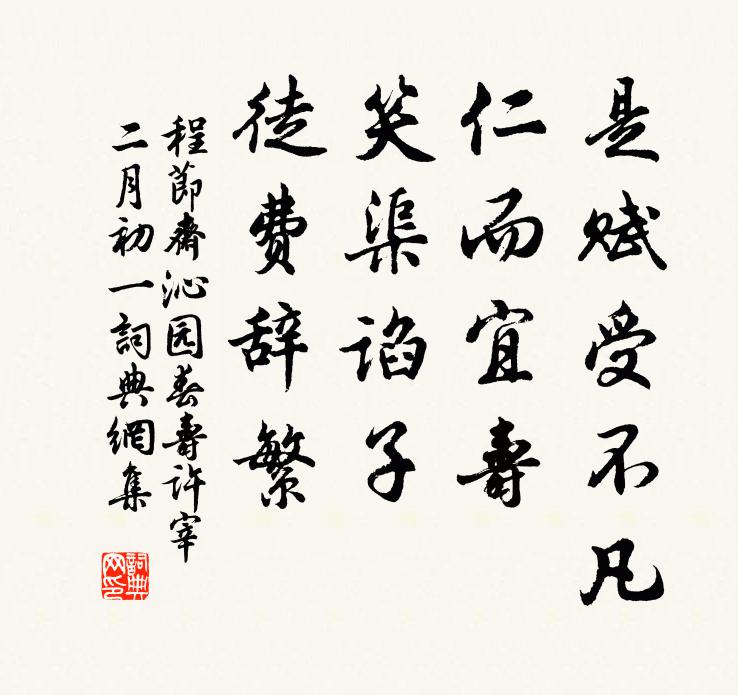 是赋受不凡
仁而宜壽
笑渠谄子
徒费辞繁
程節齋沁园春壽许宰
二月初一詞典網集
詞典网印